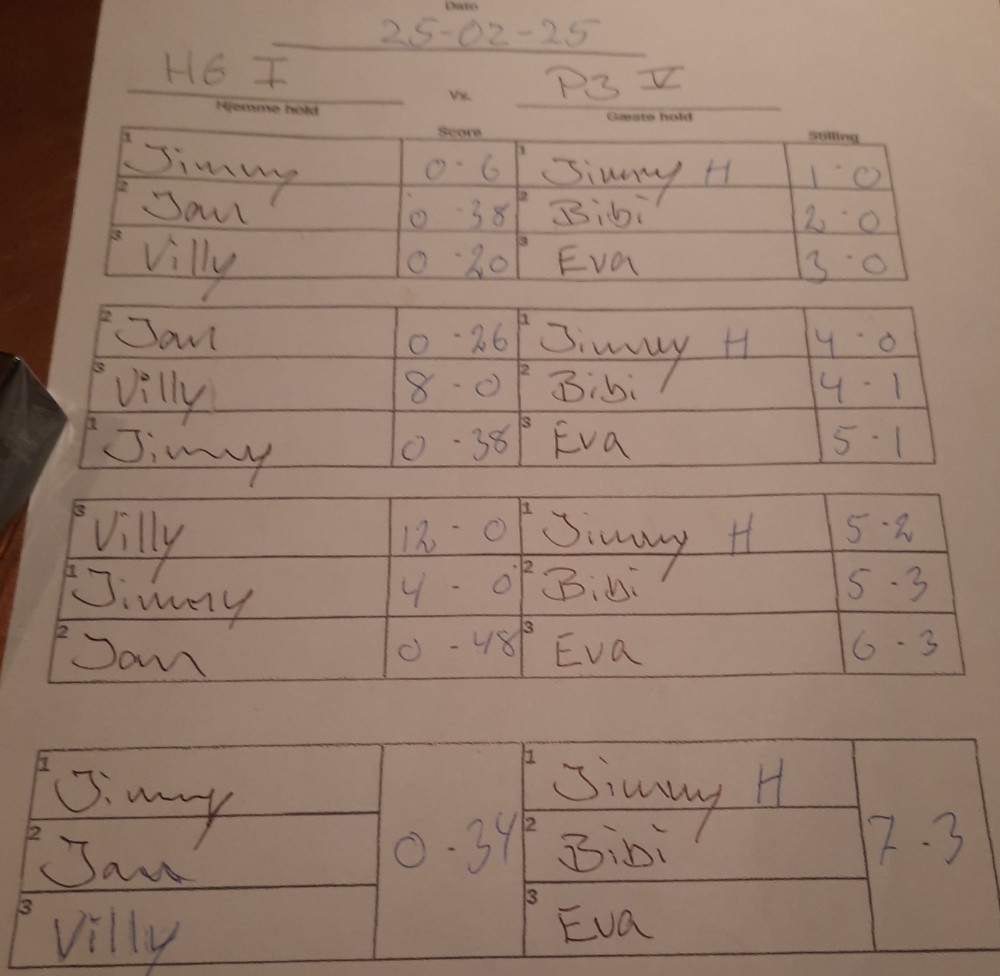 Dato
25-02-25
H6 I Vs. P3 V
Hjemme hold Gæste hold
Score Stilling
1 Jimmy 0-6 1 Jimmy H 1-0
2 Jan 0-38 2 Bibi 2-0
3 Villy 0-20 3 Eva 3-0
2 Jan 0-26 1 Jimmy H 4-0
3 Villy 8-0 2 Bibi 4-1
1 Jimmy 0-38 3 Eva 5-1
3 Villy 12-0 1 Jimmy H 5-2
1 Jimmy 4-0 2 Bibi 5-3
2 Jan 0-48 3 Eva 6-3
1 Jimmy 1 Jimmy H
2 Jan 0-34 2 Bibi 7-3
3 Villy 3 Eva